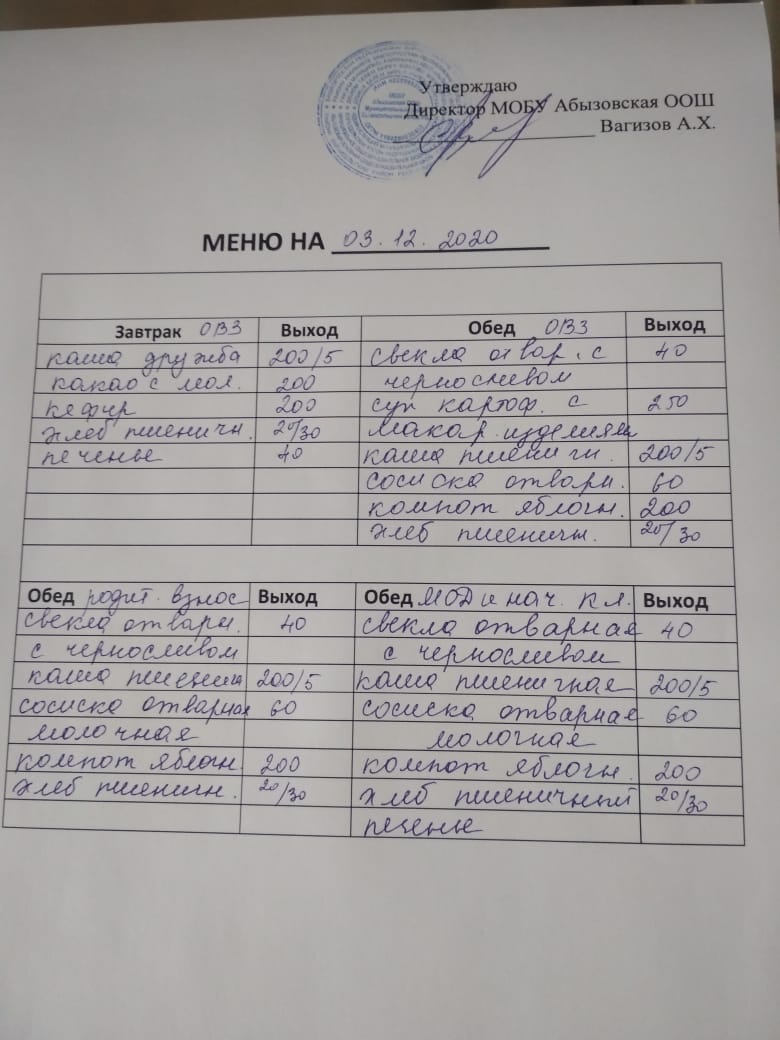 Утверждаю
Директор МОБУ Абызовская ООШ
Вагизов А.Х.
МЕНЮ НА 03.12.2020
Завтрак ОВЗ Выход Обед ОВЗ Выход
каша дружба 200/5 свекла отвар. с 40
какао с мол. 200 черносливом
кефир 200 суп картоф. с 250
хлеб пшеничн. 20/30 макар. изделиям
печенье 40 каша пшеничн. 200/5
сосиска отварн. 60
компот яблочн. 200
хлеб пшеничн. 20/30
Обед родит. взнос Выход Обед МОД и нач. кл. Выход
свекла отварн. 40 свекла отварная 40
с черносливом с черносливом
каша пшенична 200/5 каша пшеничная 200/5
сосиска отварная 60 сосиска отварная 60
молочная молочная
компот яблочн. 200 компот яблочн. 200
хлеб пшеничн. 20/30 хлеб пшеничный 20/30
печенье